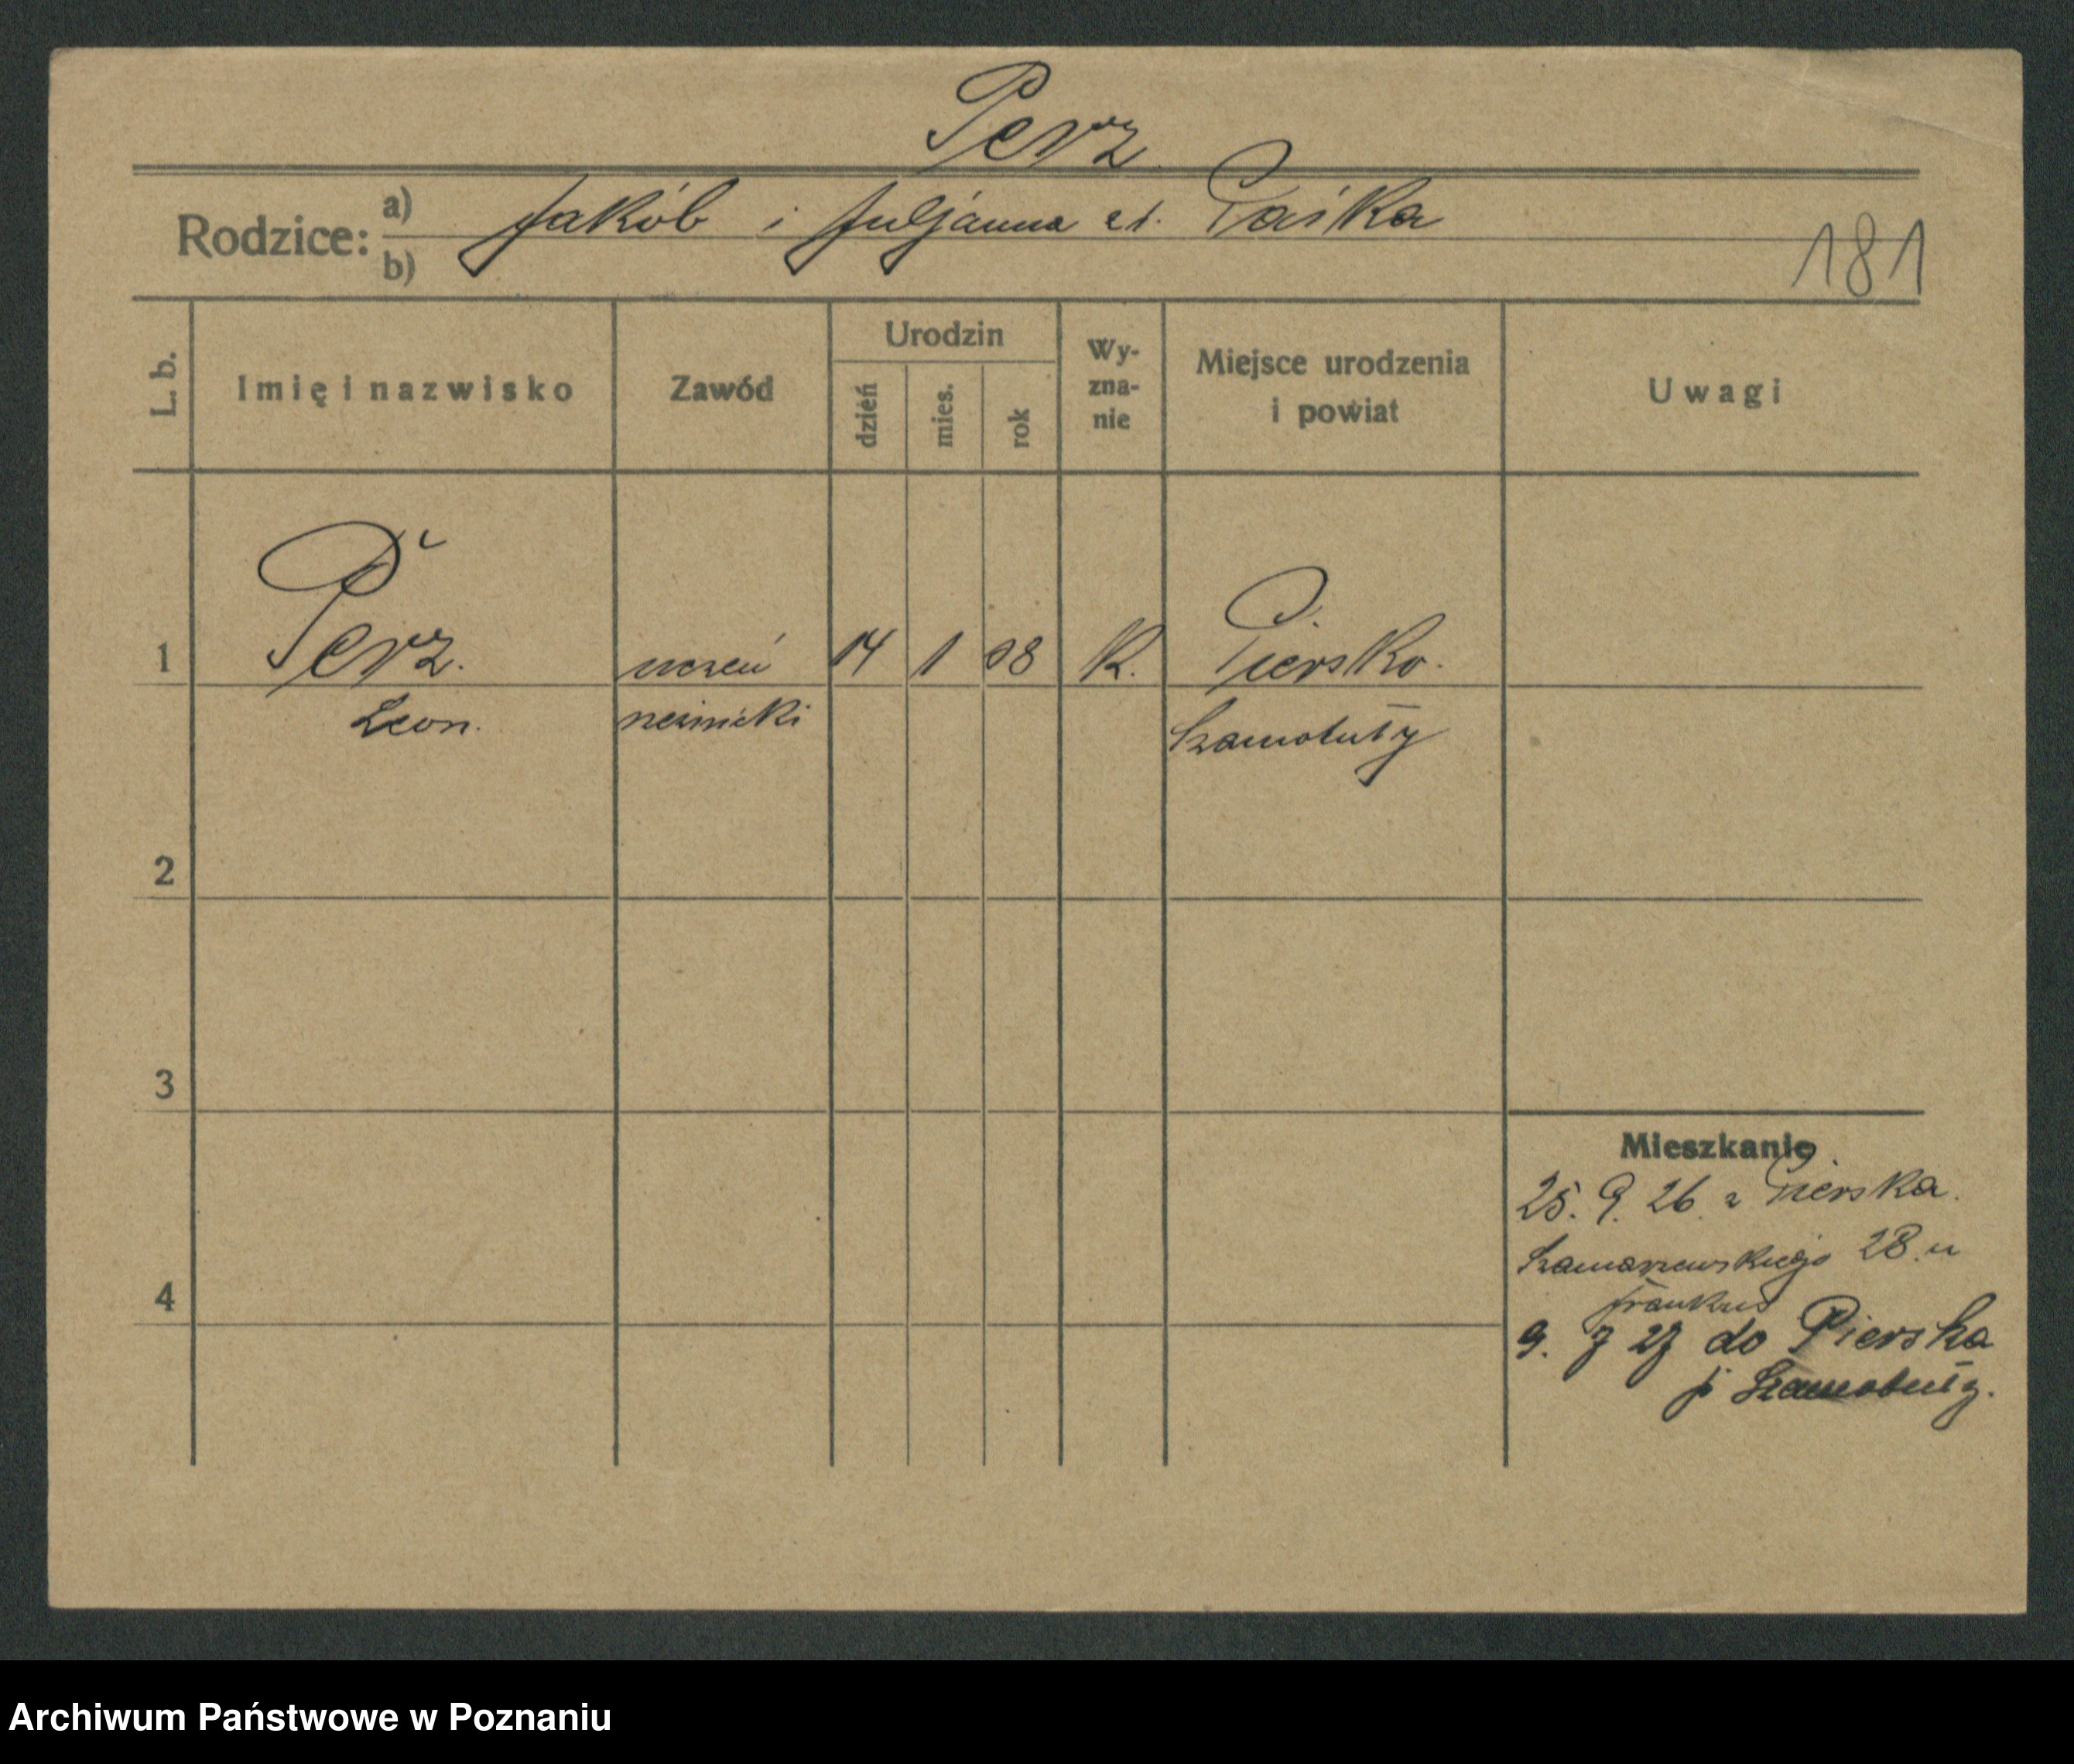 Perz
Rodzice: a) Jakób i Juljanna zd. Paśka
b)
181
L. b. Imię i nazwisko Zawód Urodzin dzień mies. rok Wy-zna-nie Miejsce urodzenia i powiat Uwagi
1 Perz. uczeń 14 1 08 K. Piersko.
Leon. rzeźnicki Szamotuły
2
3
Mieszkanie
25. 9. 26. z Pierska.
Szamarzewskiego 28. u
4
9. 7 27 do Pierska
p. Szamotuły.
Archiwum Państwowe w Poznaniu